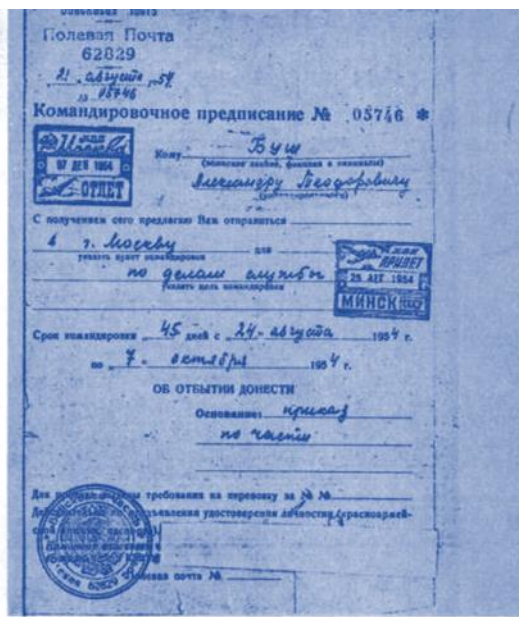 Полевая Почта
62829
21 августа 54
№ 05746
Командировочное предписание № 05746 *
Кому Буш
(воинское звание, фамилия и инициалы)
Александру Теодоровичу
МОСКВА
07 ДЕК 1954
ОТЛЕТ
С получением сего предлагаю Вам отправиться
в г. Москву для
указать пункт командировки
по делам службы
указать цель командировки
ПРИЛЕТ
25 АВГ 1954
МИНСК
Срок командировки 45 дней с 24 августа 1954 г.
по 7 октября 1954 г.
ОБ ОТБЫТИИ ДОНЕСТИ
Основание: приказ
по части
Для требования на перевозку за № №
удостоверения личности (красноармей-
62829
Полевая почта №